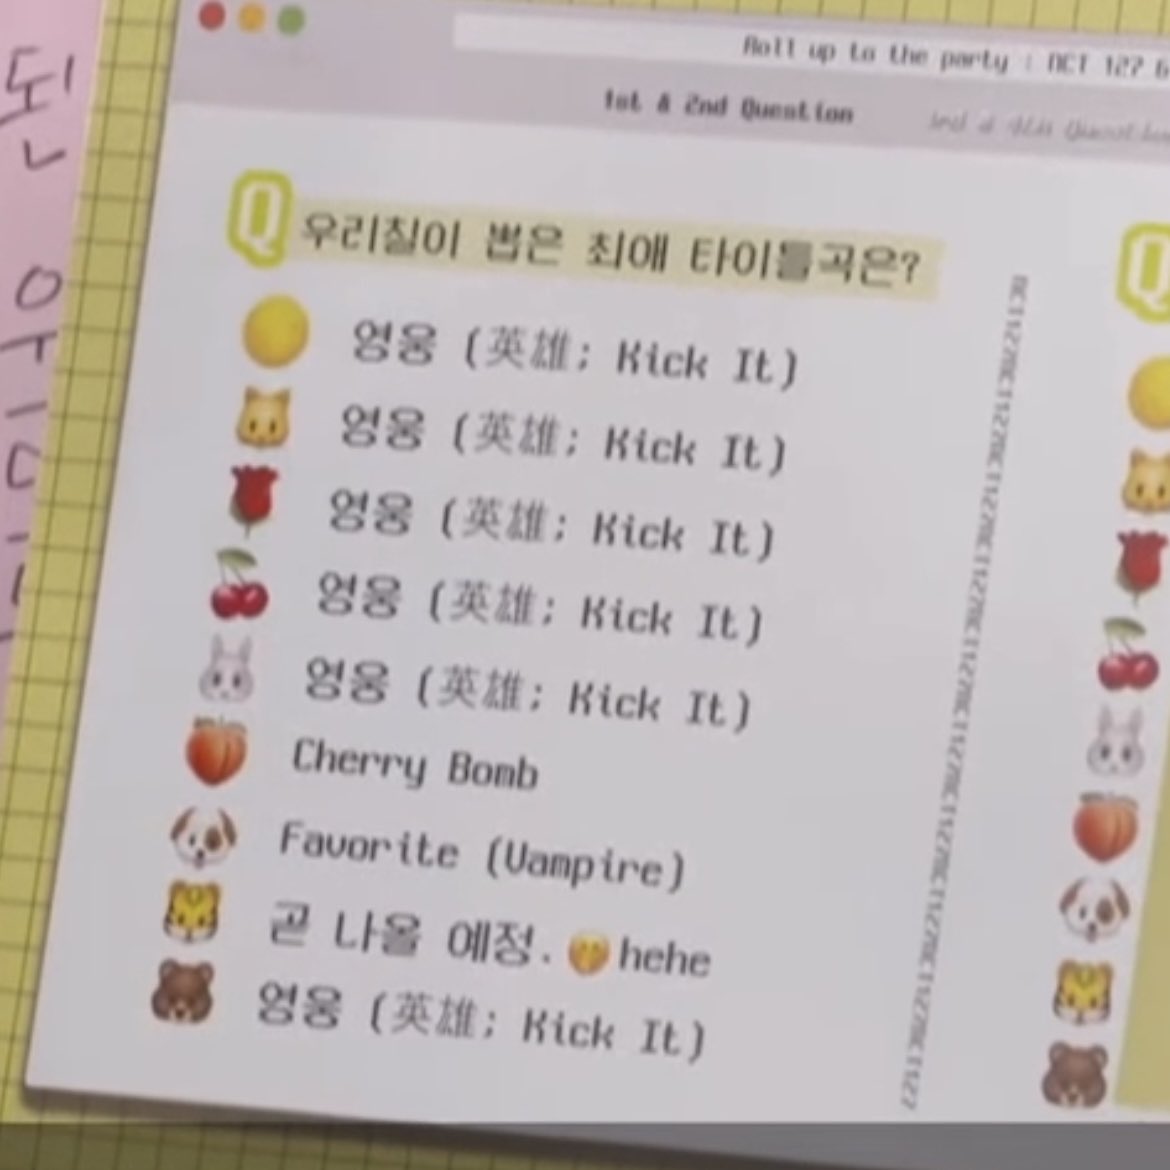 Roll up to the party : NCT 127 6
1st & 2nd Question
3rd & 4th Question
Q 우리칠이 뽑은 최애 타이틀곡은?
영웅 (英雄; Kick It)
영웅 (英雄; Kick It)
영웅 (英雄; Kick It)
영웅 (英雄; Kick It)
영웅 (英雄; Kick It)
Cherry Bomb
Favorite (Vampire)
곧 나올 예정. hehe
영웅 (英雄; Kick It)
Q